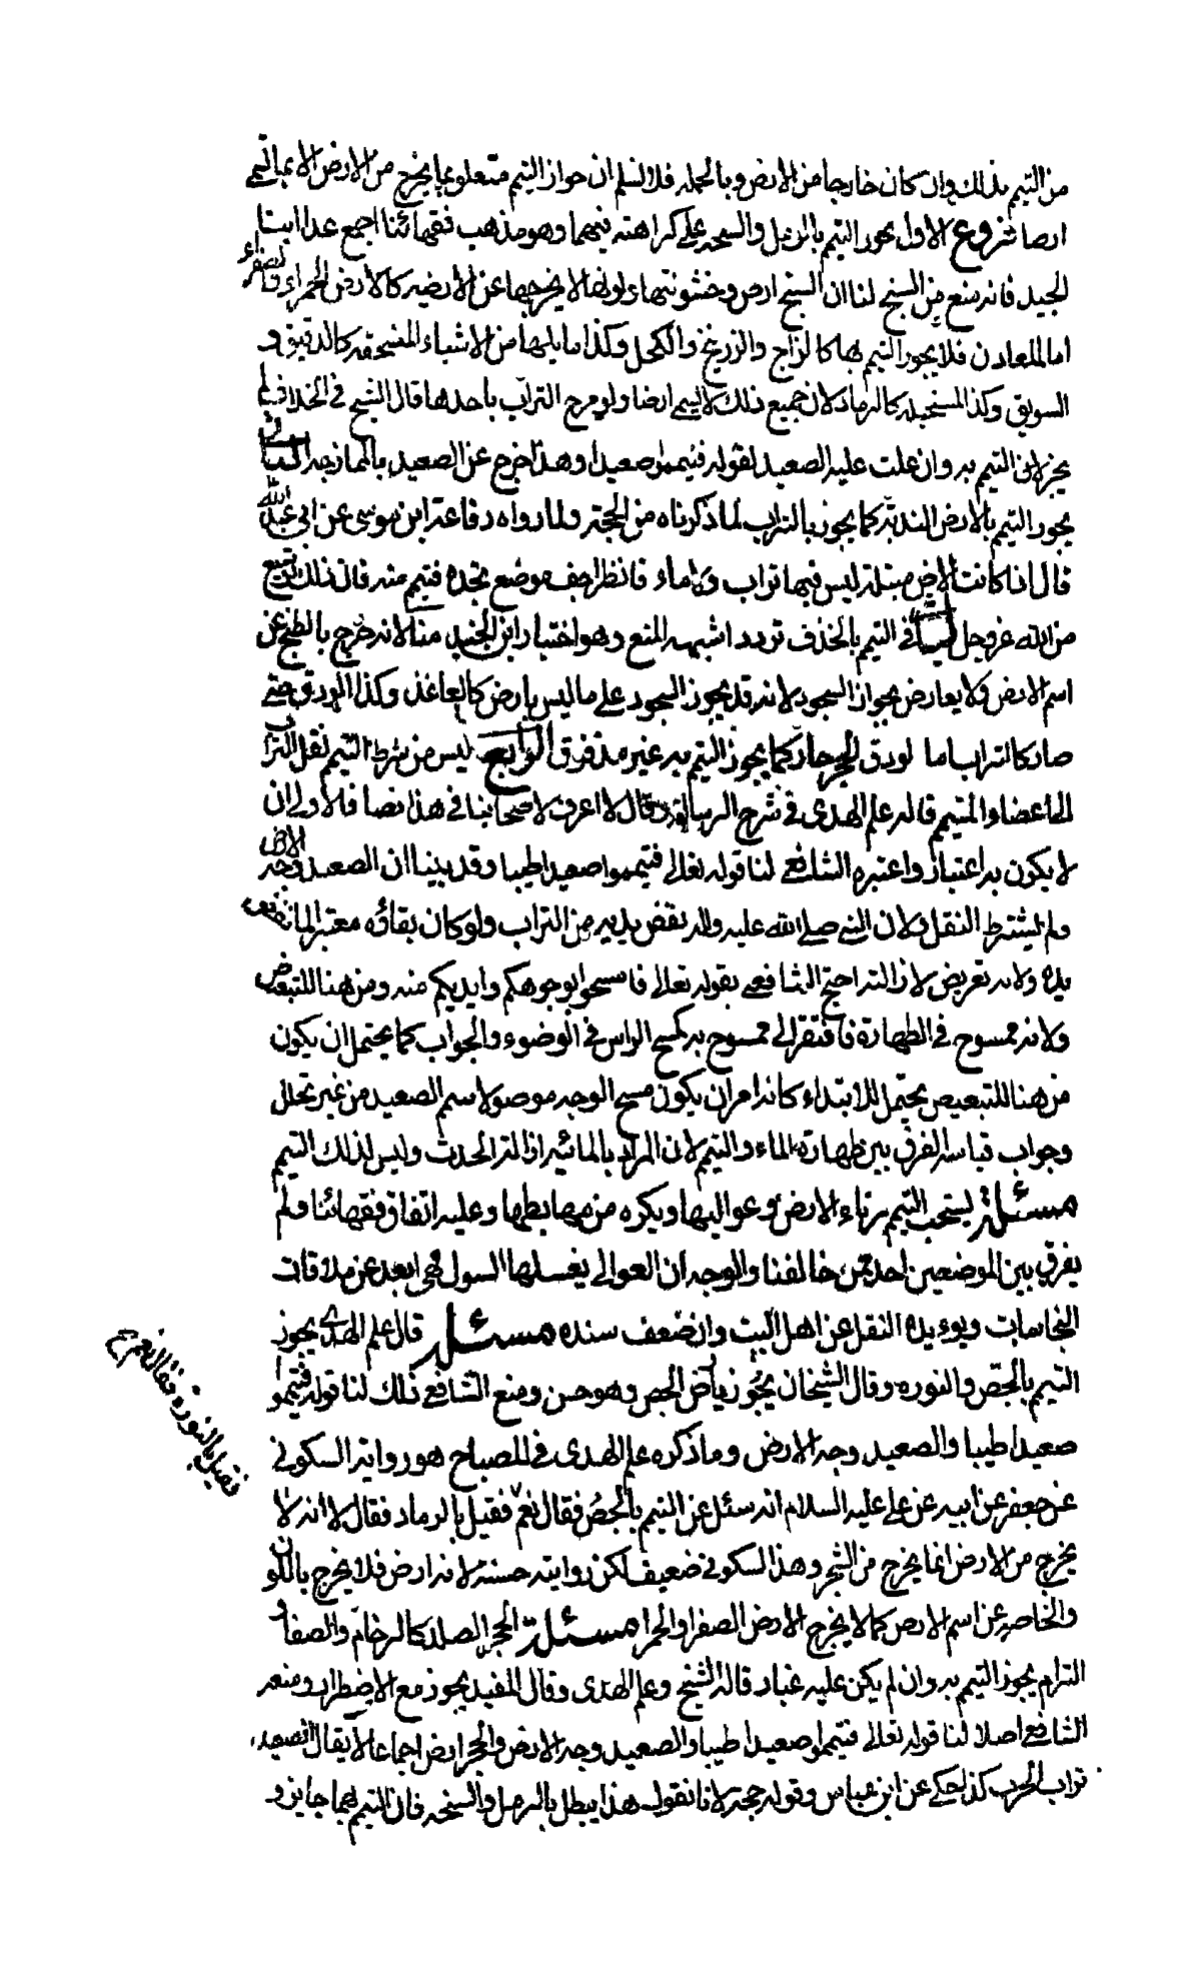 من التيمم بذلك وان كان خارجا من الارض وبالجمله فلا نسلم ان جواز التيمم متعلق بما يخرج من الارض الا بما يسمى
ارضا فروع الاول يجوز التيمم بالرمل والسبخه على كراهته فيهما وهو مذهب فقهائنا اجمع عدا ابن
الجنيد فانه منع من السبخ لنا ان السبخ ارض وخشونتها ولونها لا يخرجها عن الارضيه كالارض الحمراء والصفراء
اما المعادن فلا يجوز التيمم بها كالزاج والزرنيخ والكحل وكذا ما يليها من الاشياء المنسحقه كالدقيق و
السويق وكذا المستحيله كالرماد لان جميع ذلك لا يسمى ارضا ولو مزج التراب باحدها قال الشيخ في الخلاف لم
يجز لان التيمم به وان غلب عليه الصعيد لقوله فتيمموا صعيدا وهذا خرج عن الصعيد بالممازجه الثاني
يجوز التيمم بالارض النديه كما يجوز بالتراب لما ذكرناه من الحجة ولما رواه رفاعة ابن موسى عن ابي عبد الله
قال اذا كانت الارض مبتلة ليس فيها تراب ولا ماء فانظر اجف موضع تجده فتيمم منه فان ذلك توسيع
من الله عز وجل الثالث في التيمم بالخذف تردد اشبهه المنع وهو اختيار ابن الجنيد منا لانه خرج بالطبخ عن
اسم الارض ولا يعارض بجواز السجود لانه قد يجوز السجود على ما ليس بارض كالكاغذ وكذا لو دق حتى
صار كالتراب اما لو دق الحجر جاز كما يجوز التيمم به غير مدقوق الرابع ليس من شرط التيمم نقل التراب
الى اعضاء المتيمم قاله علم الهدى في شرح الرسالة وقال لا اعرف لاصحابنا في هذا نصا فالاولى ان
لا يكون به اعتبار واعتبره الشافعي لنا قوله تعالى فتيمموا صعيدا طيبا وقد بينا ان الصعيد وجه الارض
ولم يشترط النقل ولان النبي صلى الله عليه واله نفض يديه من التراب ولو كان بقائه معتبرا لما نفض
يده ولانه تعريض لازالته احتج الشافعي بقوله تعالى فامسحوا بوجوهكم وايديكم منه ومن هنا للتبعيض
ولانه ممسوح في الطهارة فافتقر الى ممسوح به كمسح الراس في الوضوء والجواب كما يحتمل ان يكون
من هنا للتبعيض يحتمل للابتداء كانه امر ان يكون مسح الوجه موصولا باسم الصعيد من غير تخلل
وجواب قياسه الفرق بين طهارة الماء والتيمم لان المراد بالمائيه ازالة الحدث وليس لذلك التيمم
مسئلة يستحب التيمم من رباء الارض وعواليها ويكره من مهابطها وعليه اتفاق فقهائنا ولم
يفرق بين الموضعين احد ممن خالفنا والوجه ان العوالي يغسلها السيول فهي ابعد عن ملاقات
النجاسات ويؤيده النقل عن اهل البيت وان ضعف سنده مسئله قال علم الهدى يجوز
التيمم بالجص والنوره وقال الشيخان يجوز بارض الجص وهو حسن ومنع الشافعي ذلك لنا قوله فتيمموا
صعيدا طيبا والصعيد وجه الارض وما ذكره علم الهدى في المصباح هو رواية السكوني
عن جعفر عن ابيه عن علي عليه السلام انه سئل عن التيمم بالجص فقال نعم فقيل بالرماد فقال لا انه لا
يخرج من الارض انما يخرج من الشجر وهذا السكوني ضعيف لكن روايته حسنة لانه ارض فلا يخرج باللون
والخاصيه عن اسم الارض كما لا يخرج الارض الصفرا والحمرا مسئلة الحجر الصلد كالرخام والصفا و
البرام يجوز التيمم به وان لم يكن عليه غبار قاله الشيخ وعلم الهدى وقال المفيد يجوز مع الاضطرار ومنعه
الشافعي اصلا لنا قوله تعالى فتيمموا صعيدا طيبا والصعيد وجه الارض والحجر ارض اجماعا لا يقال الصعيد
تراب الحرث كذا حكى عن ابن عباس وقوله حجة لانا نقول هذا يبطل بالرمل والسبخه فان التيمم بهما جايز و
فقيل بالنورة فقال نعم